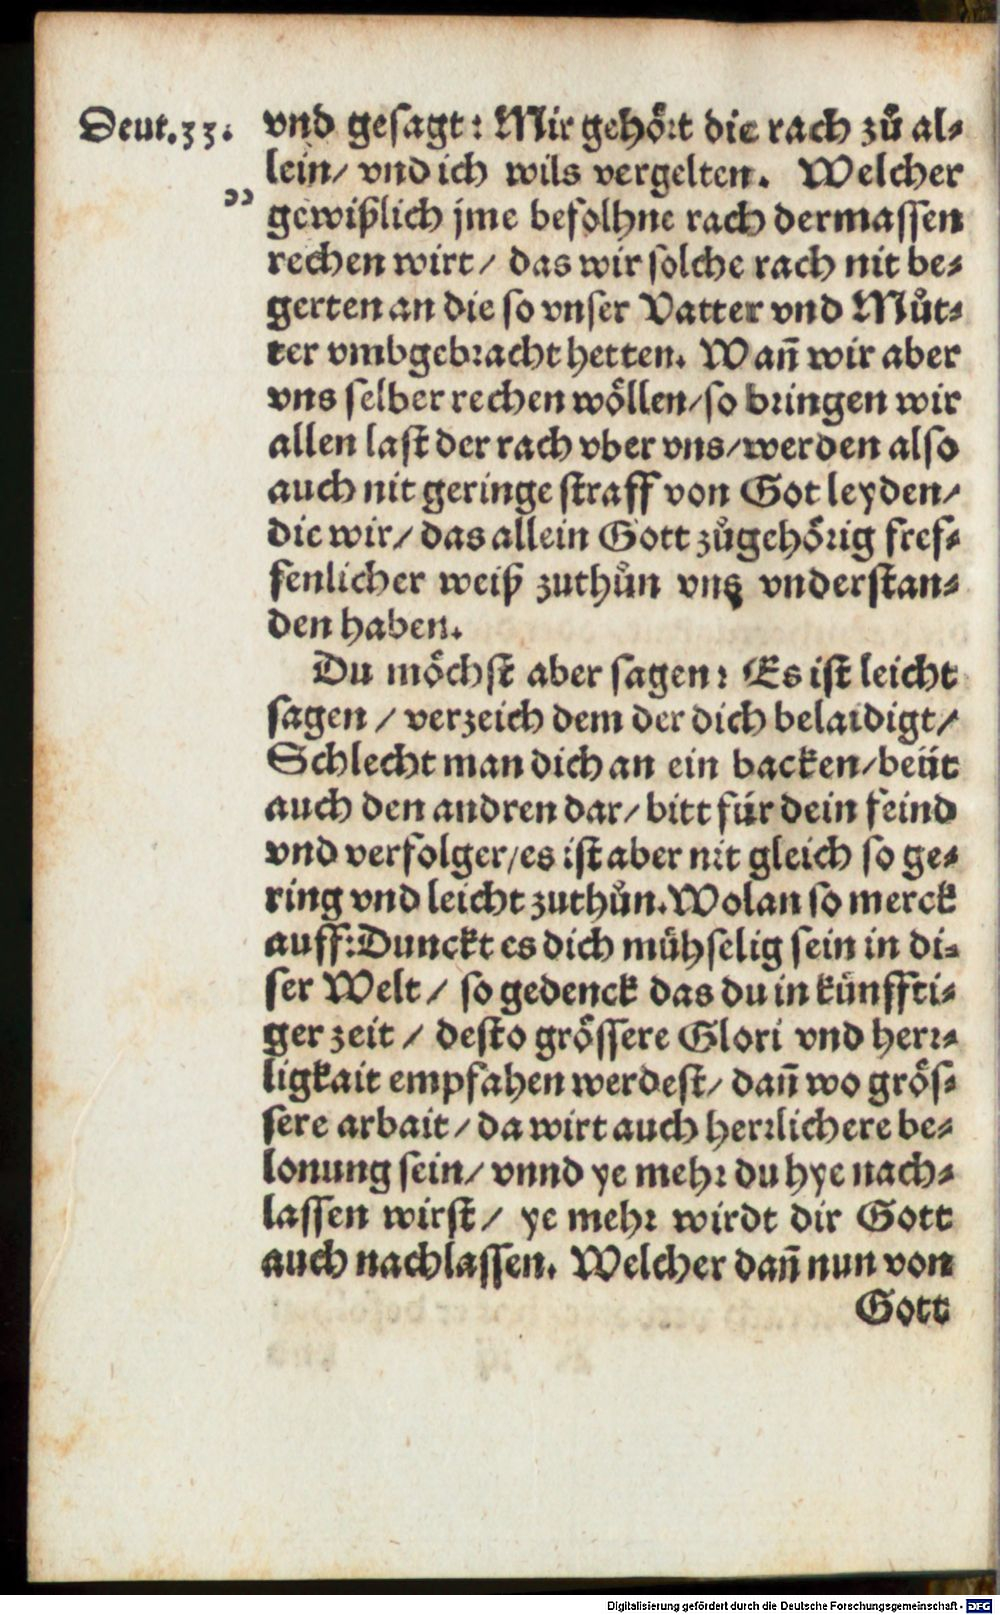 Deut.33. vnd gesagt: Mir gehoͤrt die rach zuͦ al⸗
lein/ vnd ich wils vergelten. Welcher
„ gewißlich jme befolhne rach dermassen
rechen wirt/ das wir solche rach nit be⸗
gerten an die so vnser Vatter vnd Muͦt⸗
ter vmbgebracht hetten. Wañ wir aber
vns selber rechen woͤllen/ so bringen wir
allen last der rach vber vns/ werden also
auch nit geringe straff von Got leyden/
die wir/ das allein Gott zuͦgehoͤrig fref⸗
fenlicher weiß zuthuͦn vns vnderstan⸗
den haben.
Du moͤchst aber sagen: Es ist leicht
sagen/ verzeich dem der dich belaidigt/
Schlecht man dich an ein backen/ beüt
auch den andren dar/ bitt für dein feind
vnd verfolger/ es ist aber nit gleich so ge⸗
ring vnd leicht zuthuͦn. Wolan so merck
auff: Dunckt es dich muͤhselig sein in di⸗
ser Welt/ so gedenck das du in kuͤnffti⸗
ger zeit/ desto groͤssere Glori vnd herr⸗
ligkait empfahen werdest/ dañ wo groͤs⸗
sere arbait/ da wirt auch herrlichere be⸗
lonung sein/ vnnd ye mehr du hye nach⸗
lassen wirst/ ye mehr wirdt dir Gott
auch nachlassen. Welcher dañ nun von
Gott
Digitalisierung gefördert durch die Deutsche Forschungsgemeinschaft - DFG